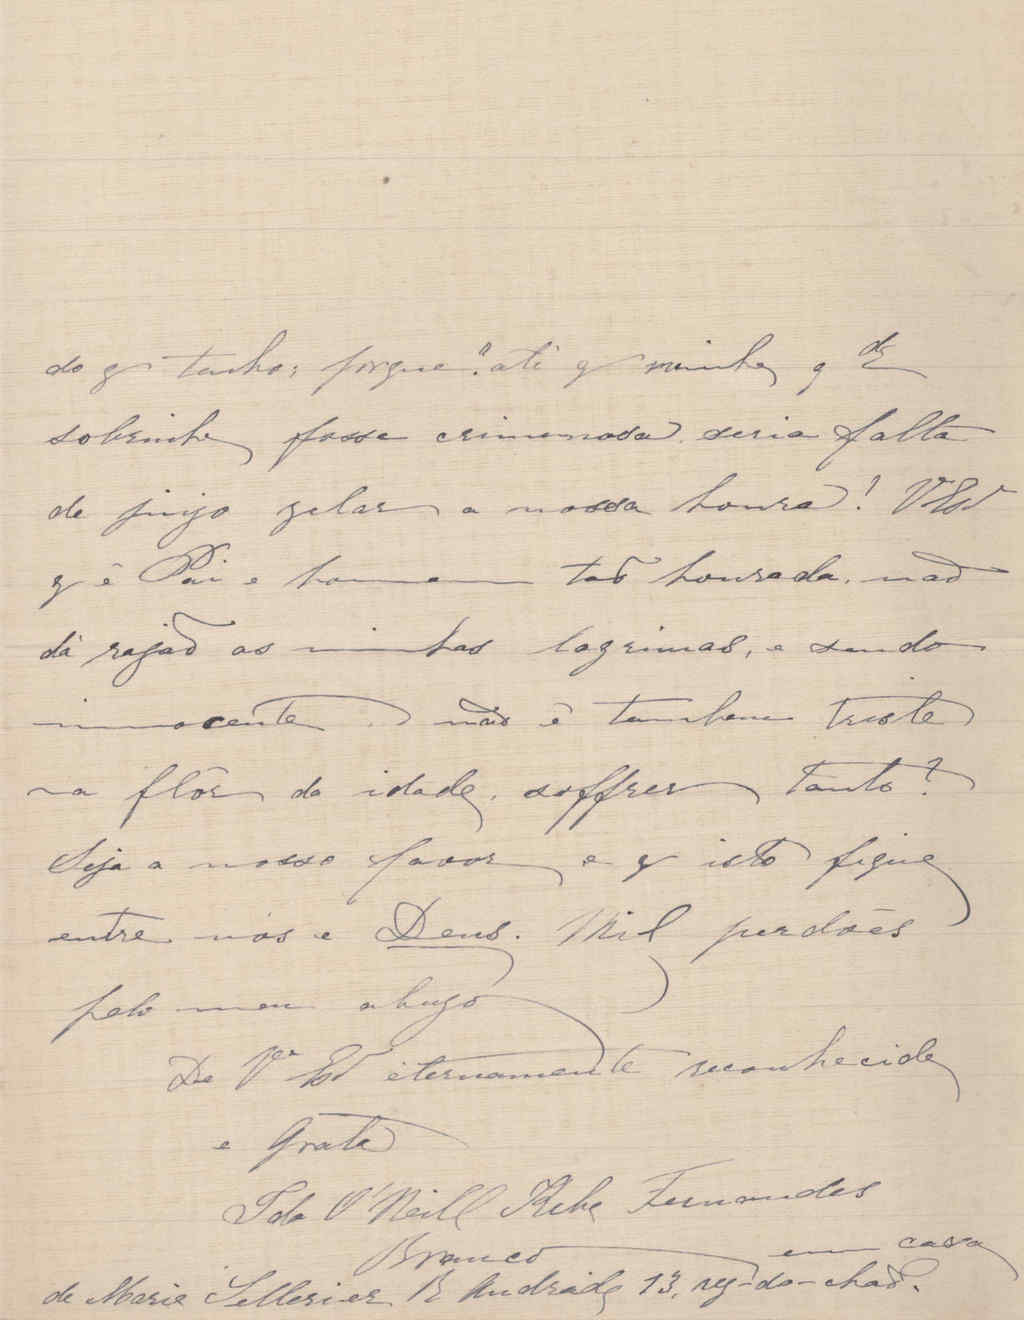 do q tenho; porque "até q minha qdª
sobrinha fosse criminosa, seria falta
de juizo zelar a nossa honra! V Exª
q é Pai e homem tão honrado, não
dá razaõ as minhas lagrimas, e sendo
innocente não é tambem triste
na flôr da idade, soffrer tanto?
Seja a nosso favor e q isto fique
entre nós e Deus. Mil perdoẽs
pelo meu abuzo
De Vª Exª eternamente reconhecida
e Grata
Ida O'Neill Fernandes
Branco em casa
de Marie Sellerier R Andrade 13, rez-do-chaõ.